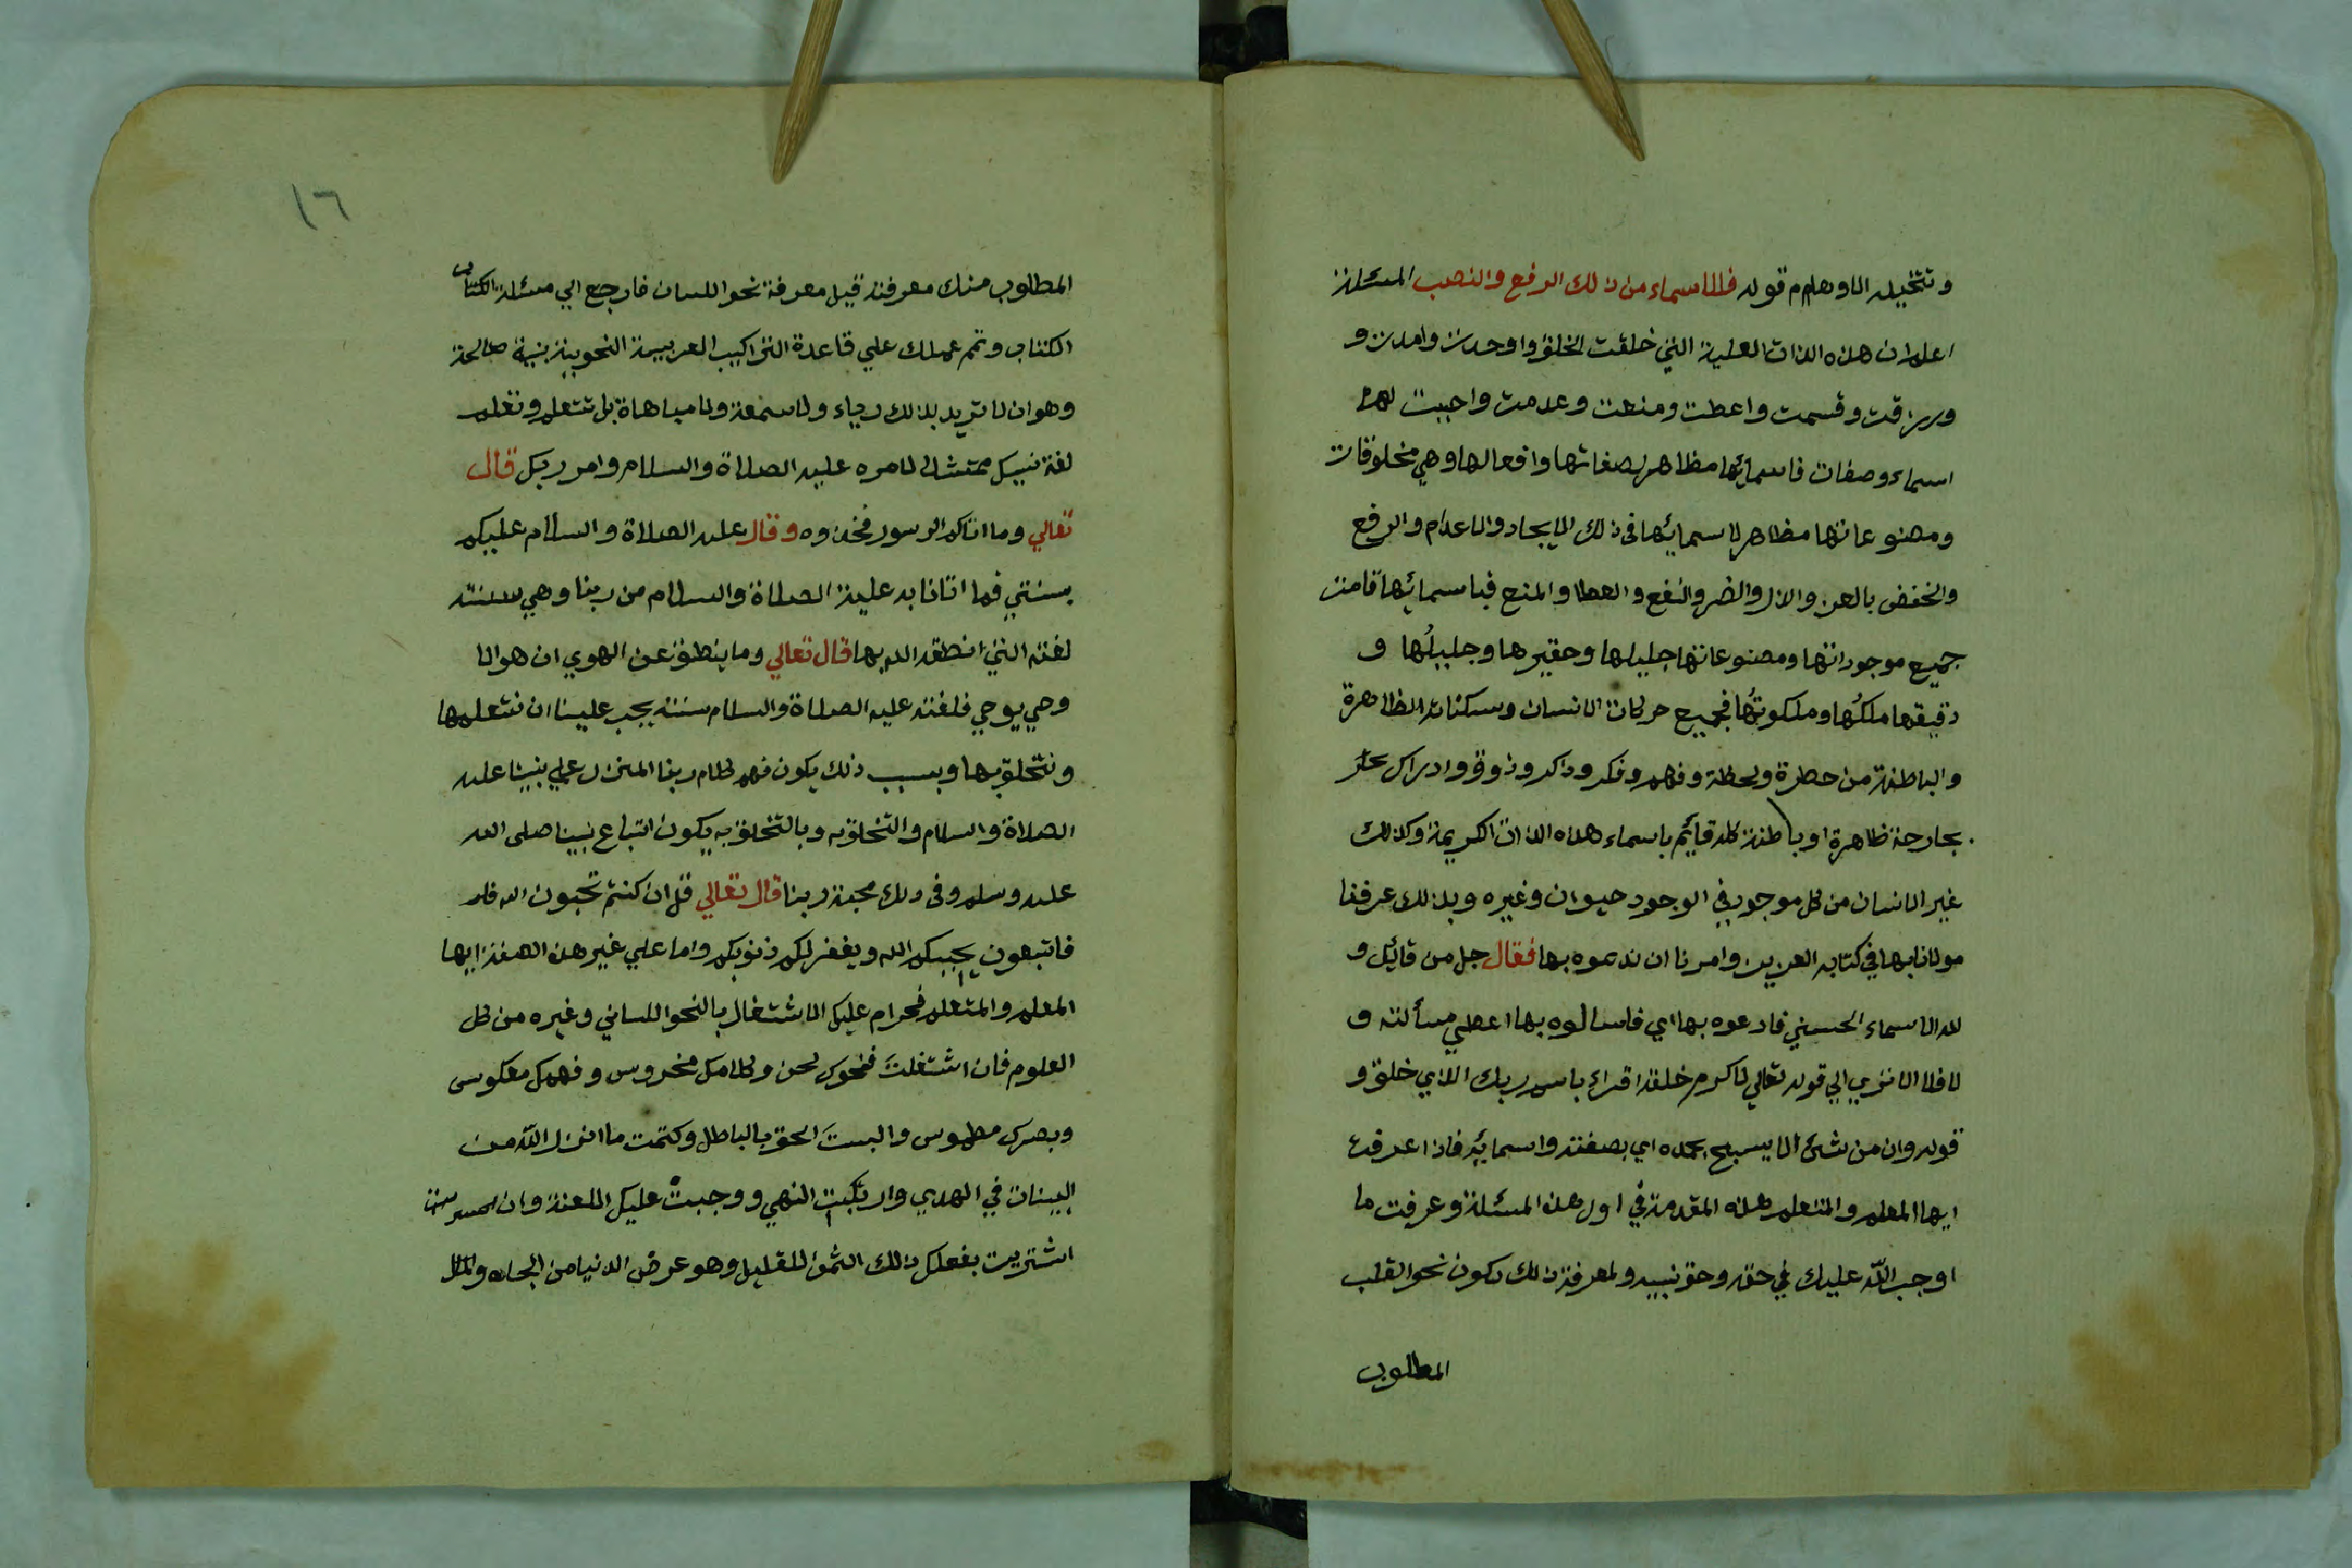 وتتخيله الاوهام م قوله فللاسماء من ذلك الرفع والنصب المسئلة
اعلم ان هذه الذات العلية التي خلقت الخلق واوجدت وامدت و
ورزقت وقسمت واعطت ومنعت وعدمت واحيت لها
اسماء وصفات فاسمائها مظاهر لصفاتها وافعالها وهي مخلوقات
ومصنوعاتها مظاهر لاسمائها في ذلك الايجاد والاعدام والرفع
والخفض بالعز والذل والضر والنفع والعطا والمنع فباسمائها قامت
جميع موجوداتها ومصنوعاتها جليلها وحقيرها وجليلُها و
دقيقها ملكُها وملكوتُها فجميع حركات الانسان وسكناته الظاهرة
والباطنة من خطرة ولحظة وفهم وفكر وذكر وذوق وادراك
بجارحة ظاهرة او باطنة كله قايم باسماء هذه الذات الكريمة وكذلك
غير الانسان من كل موجود في الوجود حيوان وغيره وبذلك عرفنا
مولانا بها في كتابه العزيز وامرنا ان ندعوه بها فقال جل من قائل و
لله الاسماء الحسني فادعوه بها اي فاسالوه بها اعطي مسألته و
لا فلا الا تري الي قوله تعالي لاكرم خلقه اقراء باسم ربك الذي خلق و
قوله وان من شئ الا يسبح بحمده اي بصفته واسمائه فاذا عرفت
ايها المعلم والمتعلم هذه المقدمة في اول هذه المسئلة وعرفت ما
اوجب اللّه عليك في حقه وحق نبيه ولمعرفة ذلك يكون نحو القلب
المطلوب
١٦
المطلوب منك معرفته قبل معرفة نحو اللسان فارجع الي مسئلة الكتاب
الكتاب وتم عملك علي قاعدة التراكيب العربيمة النحوية بنية صالحة
وهو ان لا تريد بذلك رياء ولا سمعة ولا مباهاة بل تتعلم وتعلم
لغة نبيك ممتثلا لامره عليه الصلاة والسلام وامر ربك قال
تعالي وما اتاكم الرسول فخذوه وقال عليه الصلاة والسلام عليكم
بسنتي فما اتانا به عليه الصلاة والسلام من ربنا وهي سنته
لغته التي انطقه الله بها قال تعالي وما ينطق عن الهوي ان هو الا
وحي يوحي فلغته عليه الصلاة والسلام سنته يجب علينا ان نتعلمها
ونتخلق بها وبسبب ذلك يكون فهم كلام ربنا المنزل علي نبينا عليه
الصلاة والسلام والتخلق به وبالتخلق به يكون اتباع نبينا صلى الله
عليه وسلم وفي ذلك محبة ربنا قال تعالي قل ان كنتم تحبون الله فلم
فاتبعون يحببكم الله ويغفر لكم ذنوبكم واما علي غير هذه الصفة ايها
المعلم والمتعلم فحرام عليك الاشتغال بالنحو اللساني وغيره من كل
العلوم فان اشتغلتَ فنحوك لحن وكلامك مخروس وفهمك معكوس
وبصرك مطموس والبستَ الحق بالباطل وكتمت ما انزل اللّه من
البينات في الهدي وارتكبت النهي ووجبتْ عليك اللعنة وان
اشتريت بفعلك ذالك الثمن القليل وهو عرض الدنيا من الجاه والمال